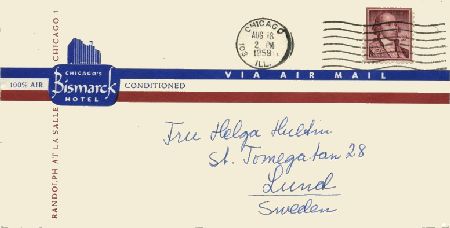 CHICAGO
103
AUG 18
2 PM
1959
ILL.
CHICAGO 1
RANDOLPH AT LA SALLE
CHICAGO'S
Bismarck
HOTEL
100% AIR CONDITIONED
VIA AIR MAIL
Fru Helga Hultin
St. Tomegatan 28
Lund
Sweden